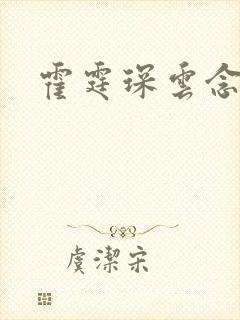 霍霆琛雲念
虞潔宋